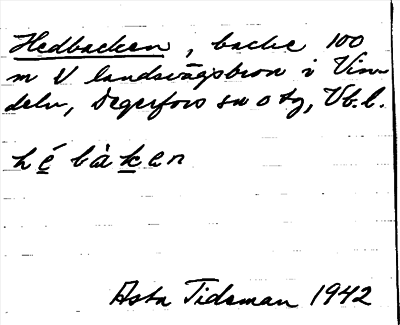 Hedbacken, backe 100
m V landsvägsbron i Vin-
deln, Degerfors sn o tg, Vb.l.
hé̱ bàḵen
Asta Tidsman 1942